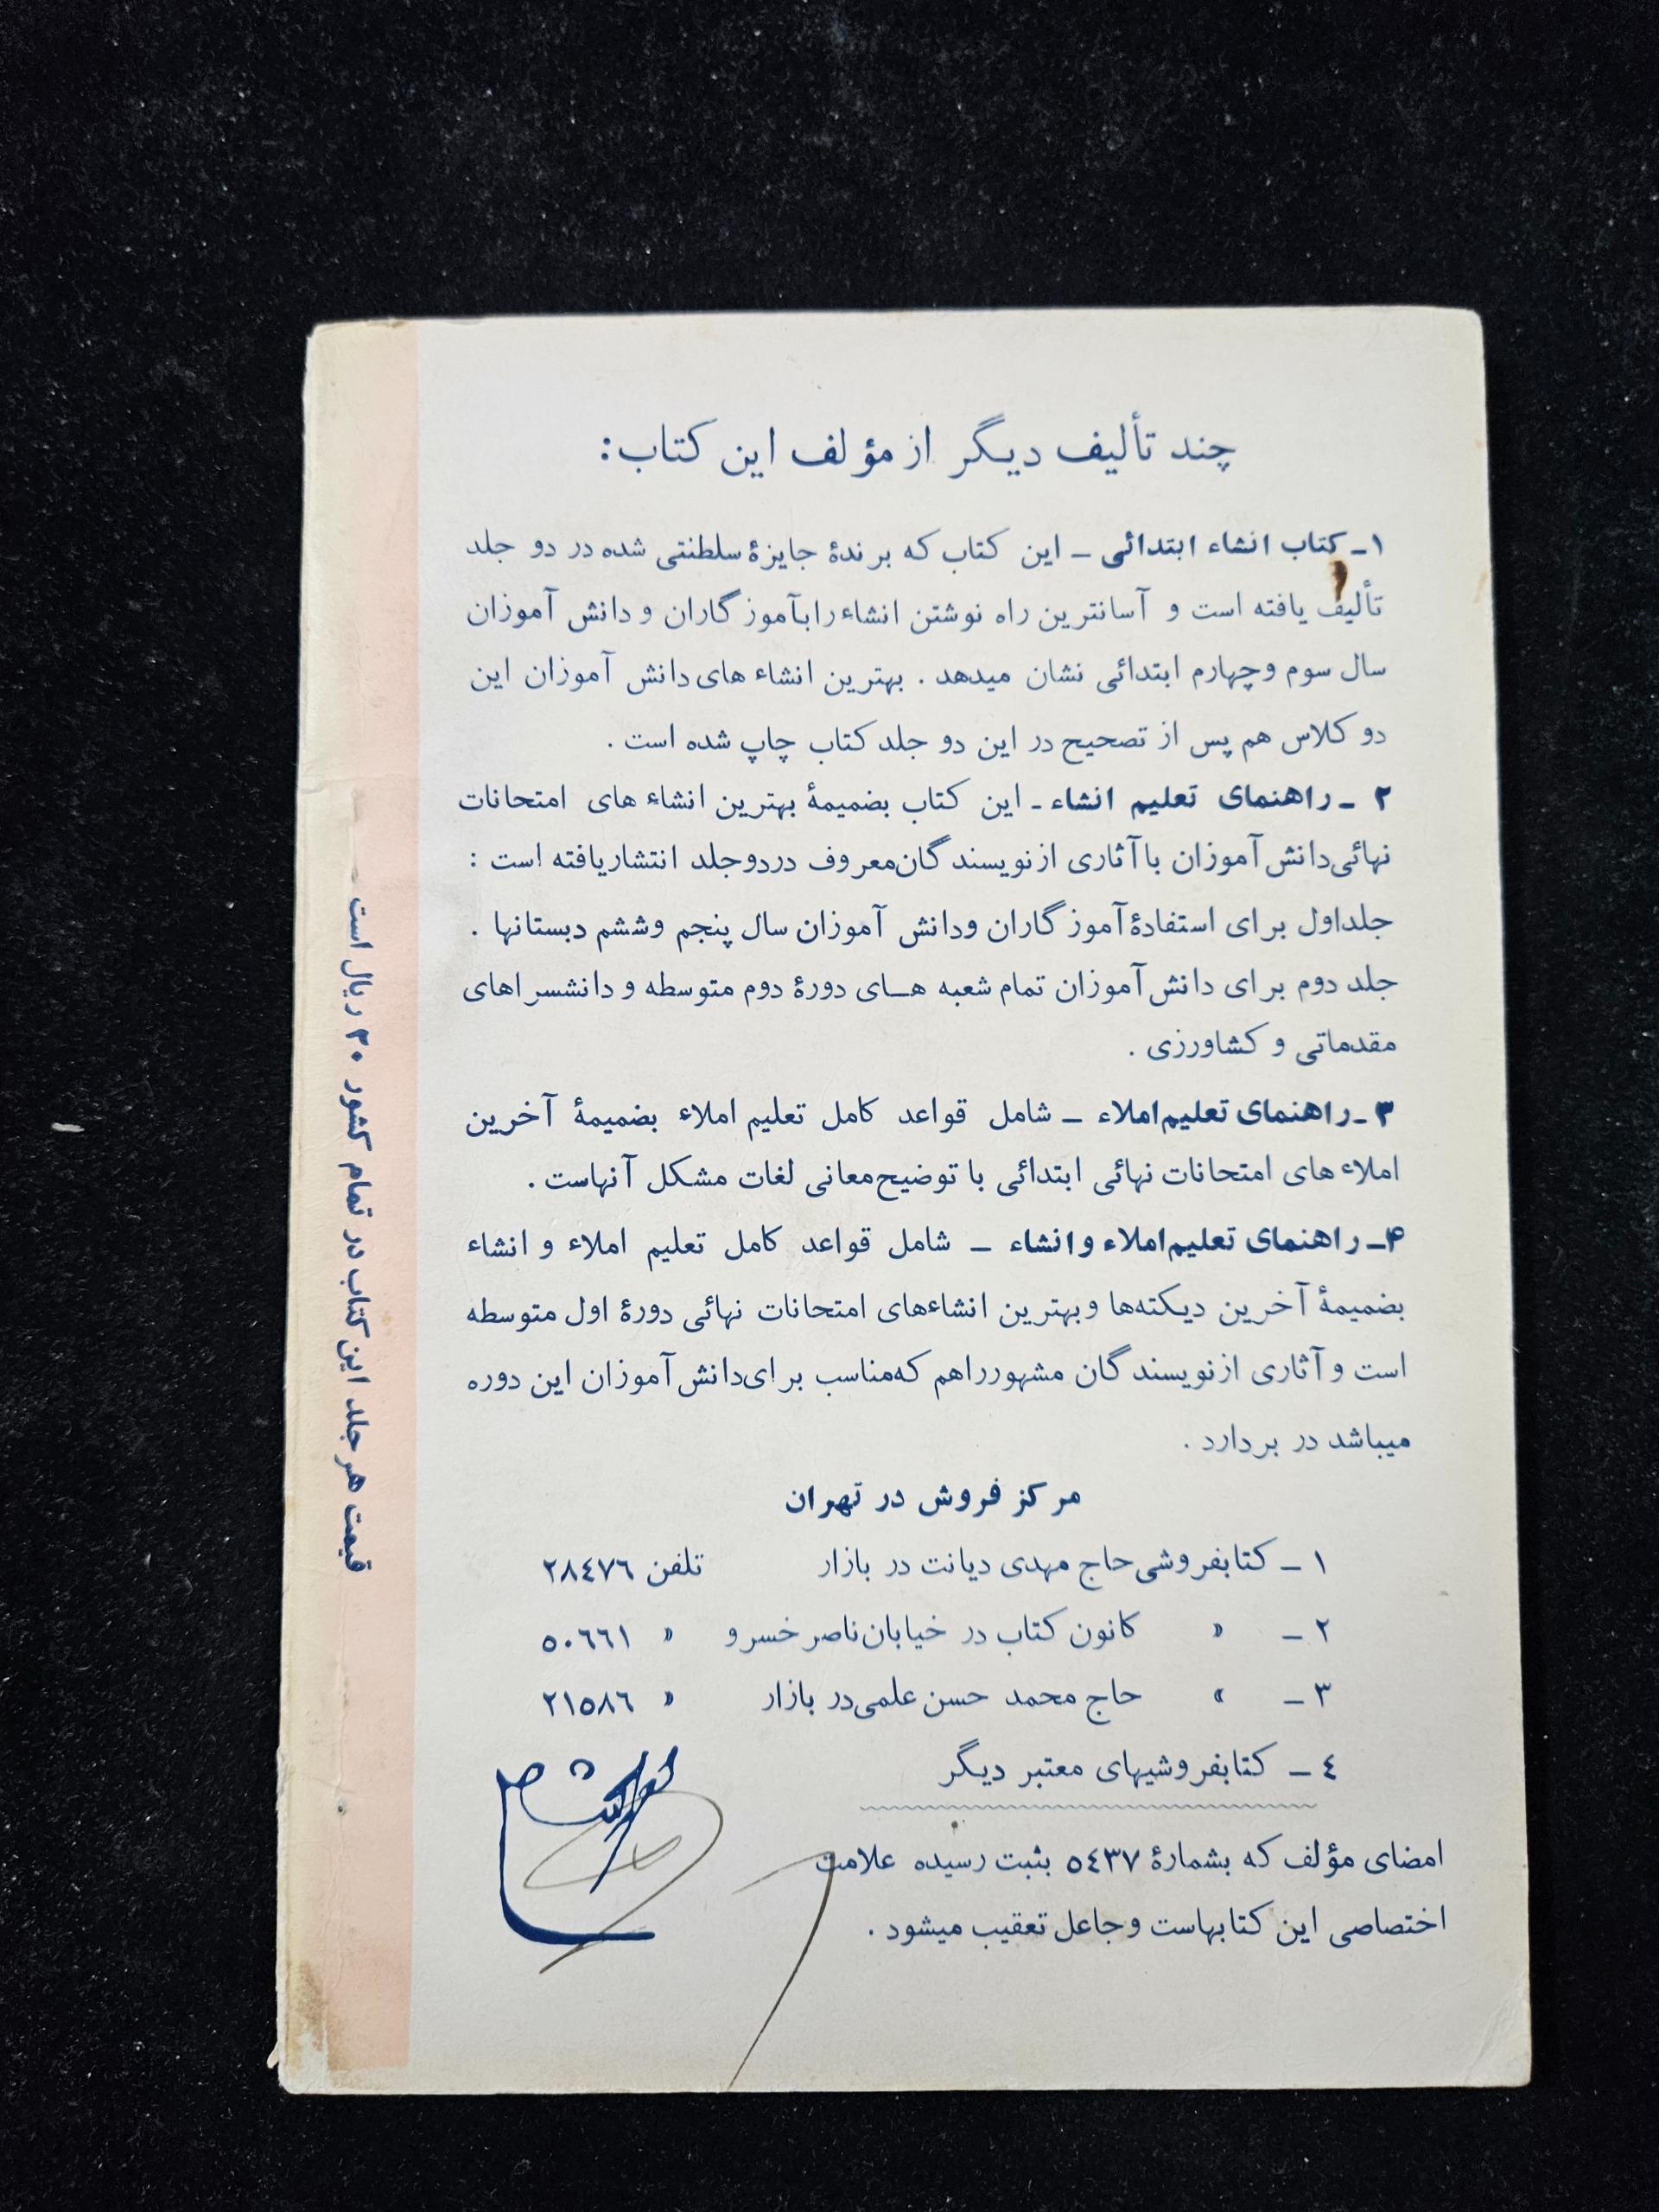 چند تألیف دیگر از مؤلف این کتاب:
۱ـ کتاب انشاء ابتدائی ـ این کتاب که برندهٔ جایزهٔ سلطنتی شده در دو جلد
تألیف یافته است و آسانترین راه نوشتن انشاء را بآموزگاران و دانش آموزان
سال سوم و چهارم ابتدائی نشان میدهد . بهترین انشاء های دانش آموزان این
دو کلاس هم پس از تصحیح در این دو جلد کتاب چاپ شده است .
۲ ـ راهنمای تعلیم انشاء ـ این کتاب بضمیمهٔ بهترین انشاء های امتحانات
نهائی دانش آموزان با آثاری از نویسندگان معروف در دو جلد انتشار یافته است :
جلد اول برای استفادهٔ آموزگاران و دانش آموزان سال پنجم و ششم دبستانها .
جلد دوم برای دانش آموزان تمام شعبه هــای دورهٔ دوم متوسطه و دانشسراهای
مقدماتی و کشاورزی .
۳ـ راهنمای تعلیم املاء ـ شامل قواعد کامل تعلیم املاء بضمیمهٔ آخرین
املاء های امتحانات نهائی ابتدائی با توضیح معانی لغات مشکل آنهاست .
۴ـ راهنمای تعلیم املاء و انشاء ـ شامل قواعد کامل تعلیم املاء و انشاء
بضمیمهٔ آخرین دیکته‌ها و بهترین انشاءهای امتحانات نهائی دورهٔ اول متوسطه
است و آثاری از نویسندگان مشهور را هم که مناسب برای دانش آموزان این دوره
میباشد در بردارد .
مرکز فروش در تهران
۱ ـ کتابفروشی حاج مهدی دیانت در بازار تلفن ۲۸٤۷٦
۲ ـ » کانون کتاب در خیابان ناصر خسرو » ۵۰٦٦۱
۳ ـ » حاج محمد حسن علمی در بازار » ۲۱۵۸٦
٤ ـ کتابفروشیهای معتبر دیگر
امضای مؤلف که بشمارهٔ ۵٤۳۷ بثبت رسیده علامت
اختصاصی این کتابهاست و جاعل تعقیب میشود .
قیمت هر جلد این کتاب در تمام کشور ۲۰ ریال است